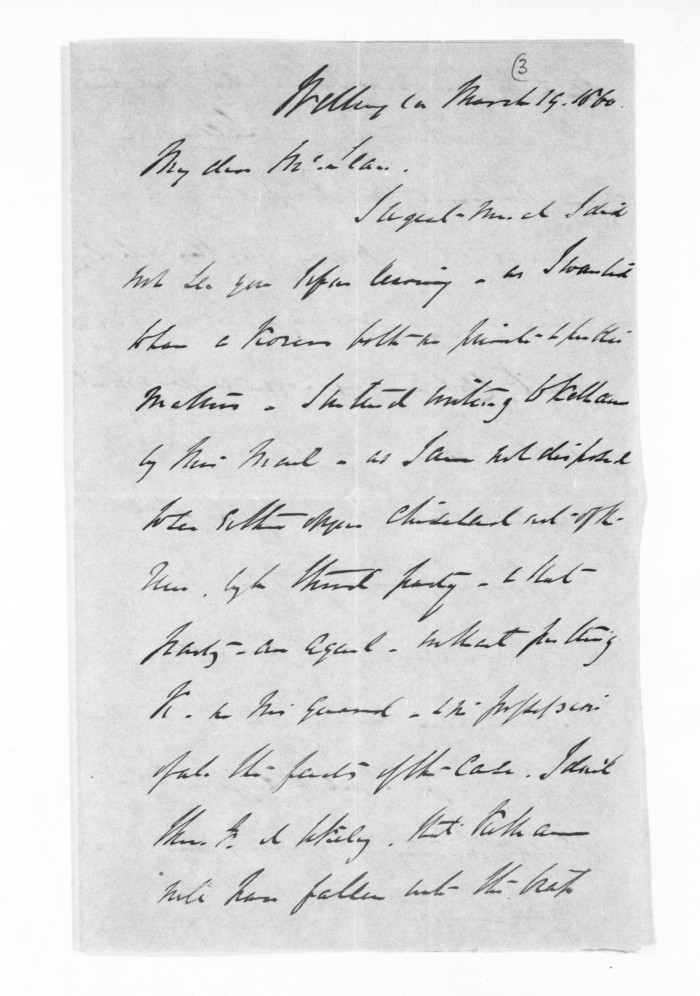 3
Wellington March 19. 1860.
My dear McLean.
I regret much I did
not see you before leaving - as I wanted
to have a both on private & public
matters - I intend writing to Kelham
by this Mail - as I am not disposed
to see either you out of the
by the third party - & that
party - an agent - without putting
K. on his guard - & in possession
of all the facts of the Case. I don't
that Kelham
will have fallen into the trap